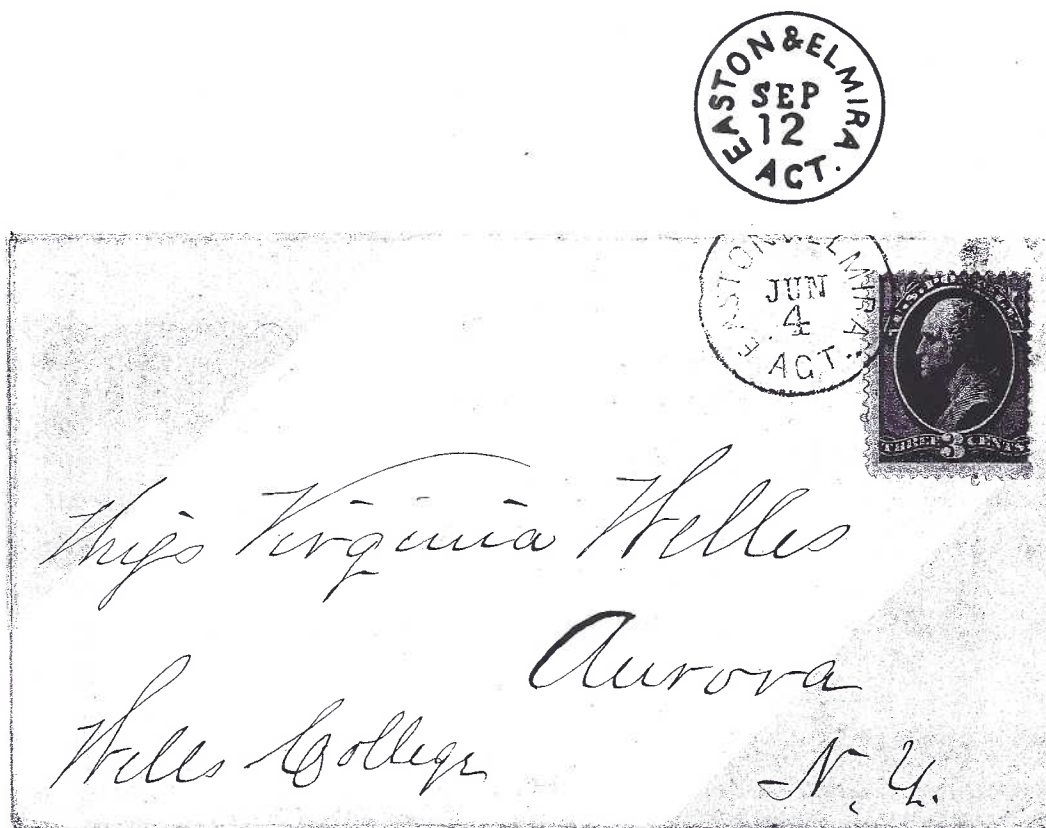 EASTON & ELMIRA AGT.
SEP
12
EASTON & ELMIRA AGT.
JUN
4
U.S. POSTAGE
THREE 3 CENTS
Miss Virginia Welles
Aurora
Wells College
N. Y.